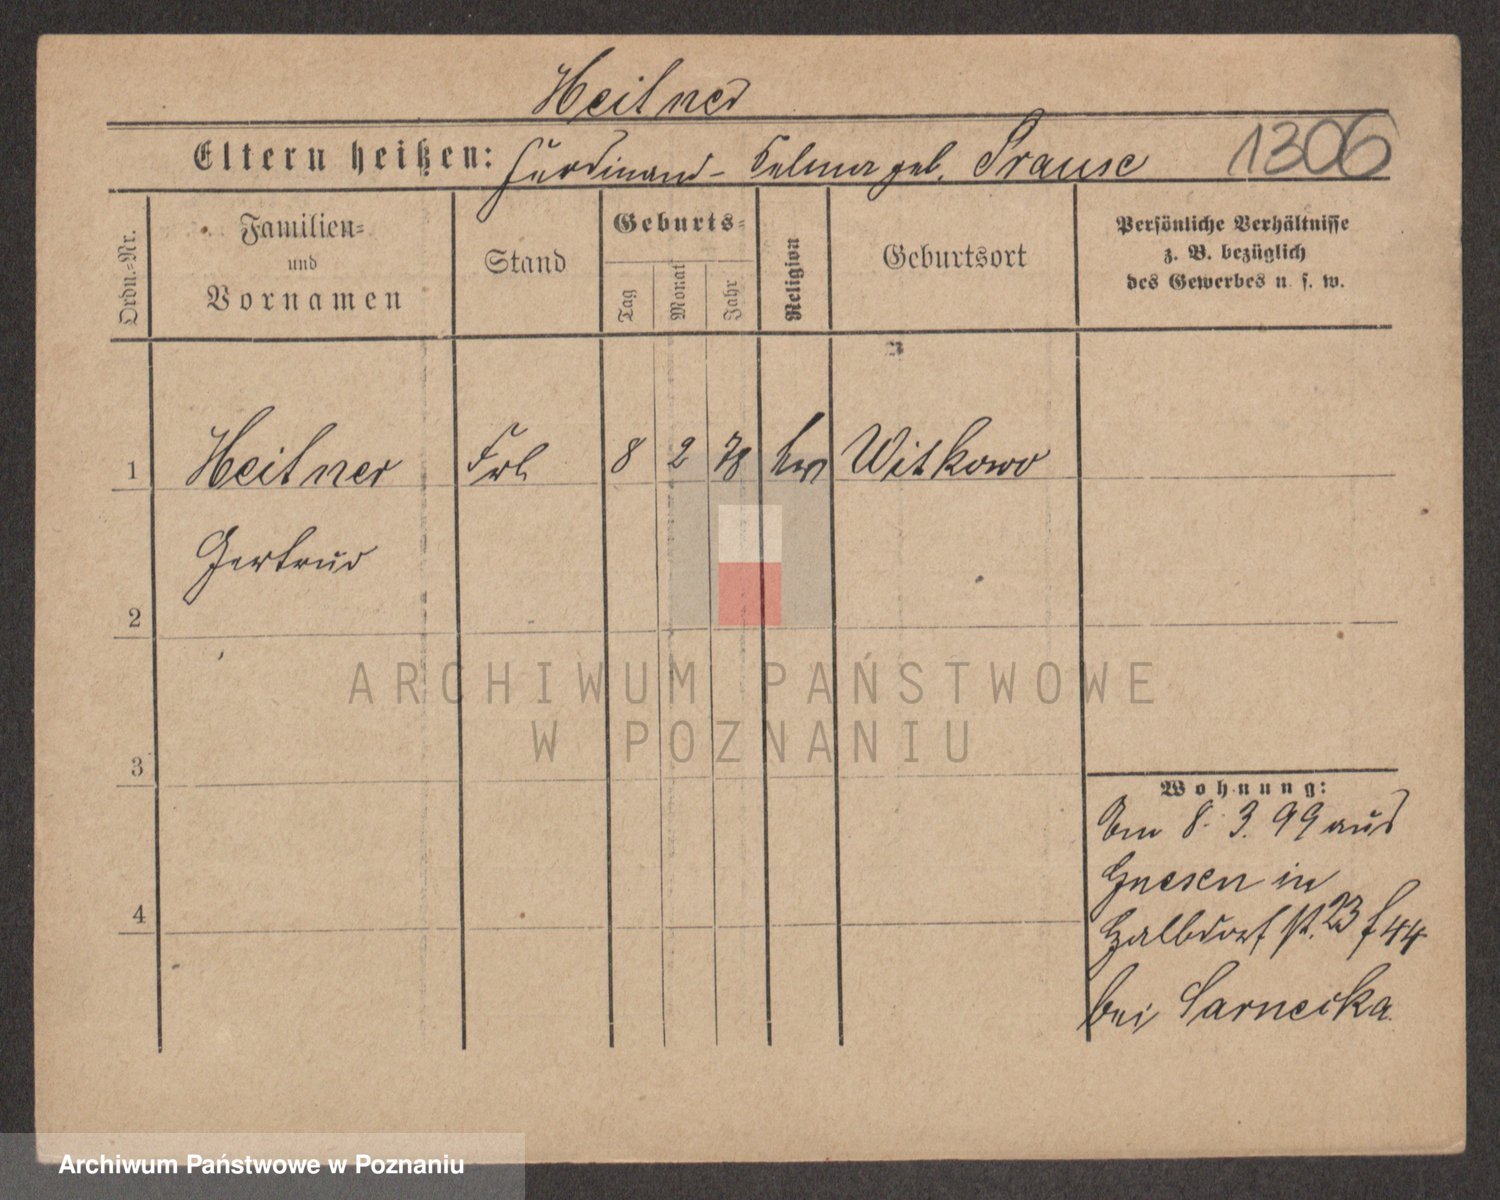 Heilner
Eltern heißen: Ferdinand - Selma geb. Prause
1306
Ordn.-Nr.
Familien-
und
Vornamen
Stand
Geburts-
Tag
Monat
Jahr
Religion
Geburtsort
Persönliche Verhältnisse
z. B. bezüglich
des Gewerbes u. s. w.
1 Heilner Frl 8 2 78 Witkowo
Gertrud
2
3
4
Wohnung:
Am 8. 3. 99 aus
Gnesen in
Halbdorf st. 23 f 44
bei Sarnecka
ARCHIWUM PAŃSTWOWE
W POZNANIU
Archiwum Państwowe w Poznaniu